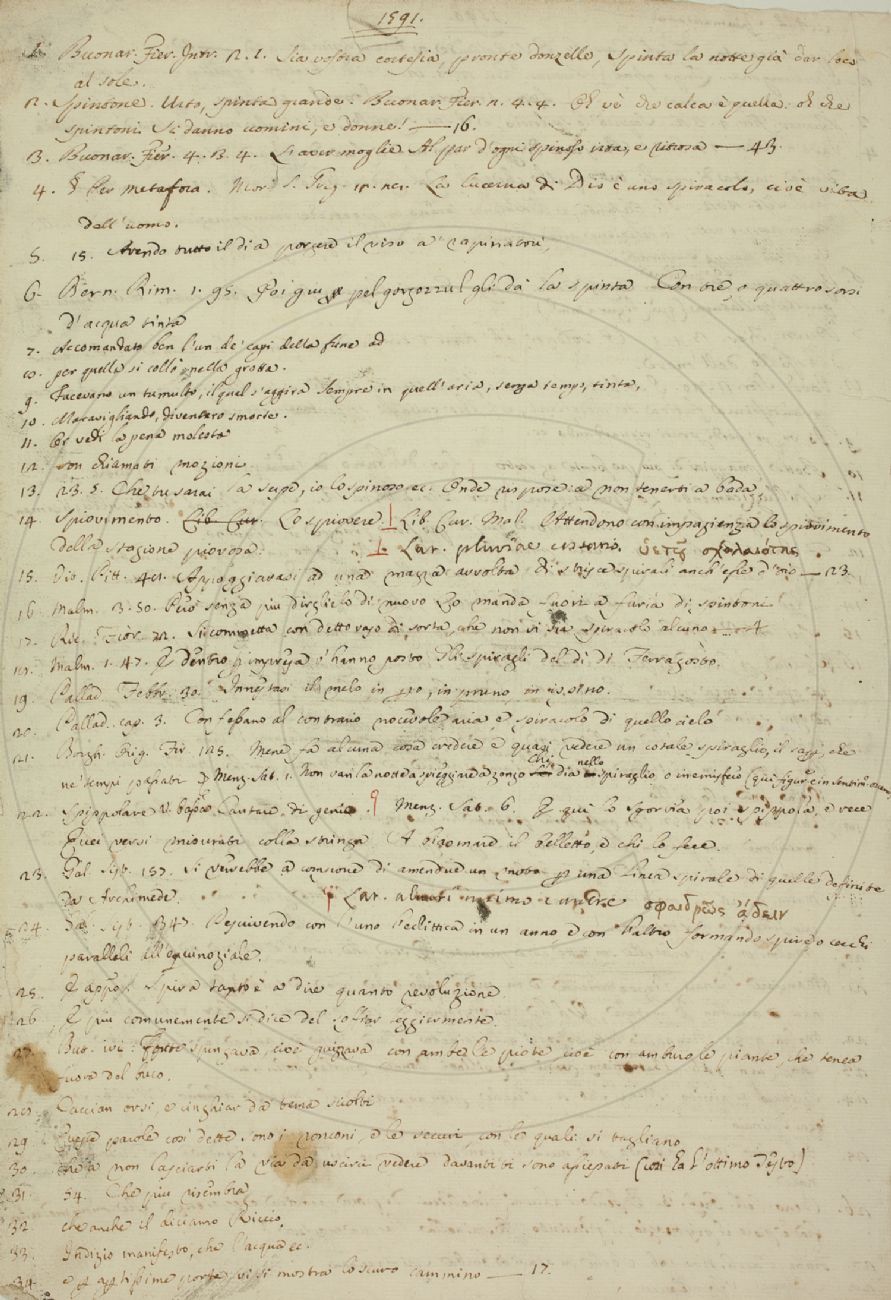 1591.
1. Buonar. Fier. Intr. 2. 1. Sia vostra cortesia, pronte donzelle, Spinta la notte già dar loco
al sole.
2. Spintone. Urto, spinta grande. Buonar. Fier. n. 4. 4. Oh ve' che calca è quella: oh che
spintoni Si danno uomini, e donne! — 16.
3. Buonar. Fier. 4. 3. 4. L'aver moglie Al par d'ogni spinoso irta, e — 43.
4. § Per metafora. Mor. S. Greg. La lucerna di Dio è uno spiracolo, cioè vita
dell'uomo.
5. 15. Avendo tutto il dì a porgere il viso a'
6. Bern. Rim. 1. 95. Poi giù pel gorgozzul gli dà la spinta Con tre, o quattro sorsi
d'acqua tinta
7. Accomandato ben l'un de' capi della fune ad
8. per quella si collò nella grotta.
9. Facevano un tumulto, il qual s'aggira Sempre in quell'aria, senza tempo, tinta,
10. Maravigliando, diventaro smorte.
11. Or vedi la pena molesta
12. son chiamati mozioni.
13. 23. 5. Che tu sarai la serpe, io lo spinoso ec. Onde rispose: a non tenerti a bada,
14. Spiovimento. Lib. Cur. Lo spiovere. Lib. Cur. Mal. Attendono con impazienza lo spiovimento
della stagione piovosa. Lat. pluviae
15. Vio. Pitt. 41. Appoggiavasi ad una mazza avvolta di strisce spirali anch'esse d'oro — 23.
16. Malm. 3. 50. Però senza più dirglielo di nuovo Lo manda fuori a furia di spintoni
17. Ric. Fior. Si commetta con detto vaso di sorta, che non vi sia spiracolo alcuno — 4
18. Malm. 1. 47. E dentro p impresa v'hanno posto Gli spiragli del dì di Ferragosto.
19. Pallad. Febbr. 30. Innestasi il melo in pero, in pruno, in
20. Pallad. cap. 3. Confessano al contrario nocevole aria, e spiracolo di quello cielo
21. Borgh. Rig. Fir. 125. Mene fa alcuna cosa credere e quasi vedere un cotale spiraglio, il sapere, che
ne' tempi Menz. Sat. 1. Non van la notte a sonzo Chi dia nello spiraglio, o in
22. Spippolare V. bassa. Cantare di genio. Menz. Sat. 6. E qui lo poi spippola, e vece
Quei versi misurati colla stringa A il belletto, e chi lo fece.
23. Gal. Sist. 157. Si verrebbe a comporre di amendue un moto per una linea spirale di quelle definite
da Archimede. Lat.
24. Gal. Sist. 347. Descrivendo con l'uno l'eclittica in un anno e con l'altro formando spire o cerchi
paralleli all'equinoziale.
25. E appo. Spira tanto è a dire quanto revoluzione
26. E più comunemente si dice del soffiar leggiermente.
27. But. ivi: Forte spingava, cioè guizzava con ambe le piote, cioè con amburo le piante, che tenea
fuora del buco.
28. Caccian orsi, e cinghiar da tema sciolti
29. Queste parole così dette sono i ronconi, e le securi, con le quali si tagliano
30. che a non lasciarti la via da uscire vedere davanti ti sono apiepati (così ha l'ottimo Testo)
31. 54. Che più risembra
32. che anche il diciamo Riccio.
33. Indizio manifesto, che l'acqua ec.
34. e p strettissime porte ivi si mostra lo scuro cammino — 17.